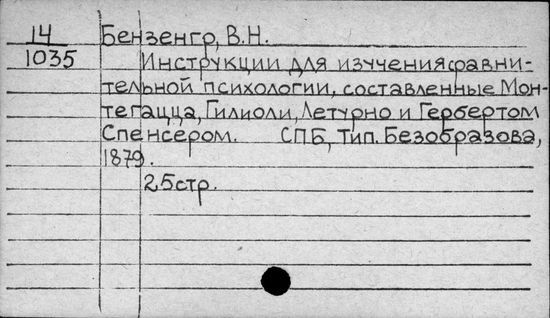 14 Бензенгр, В.Н.
1035 Инструкции для изучения сравни-
тельной психологии, составленные Мон-
тегацца, Гилиоли, Летурно и Гербертом
Спенсером. СПБ, Тип. Безобразова,
1879.
25стр.